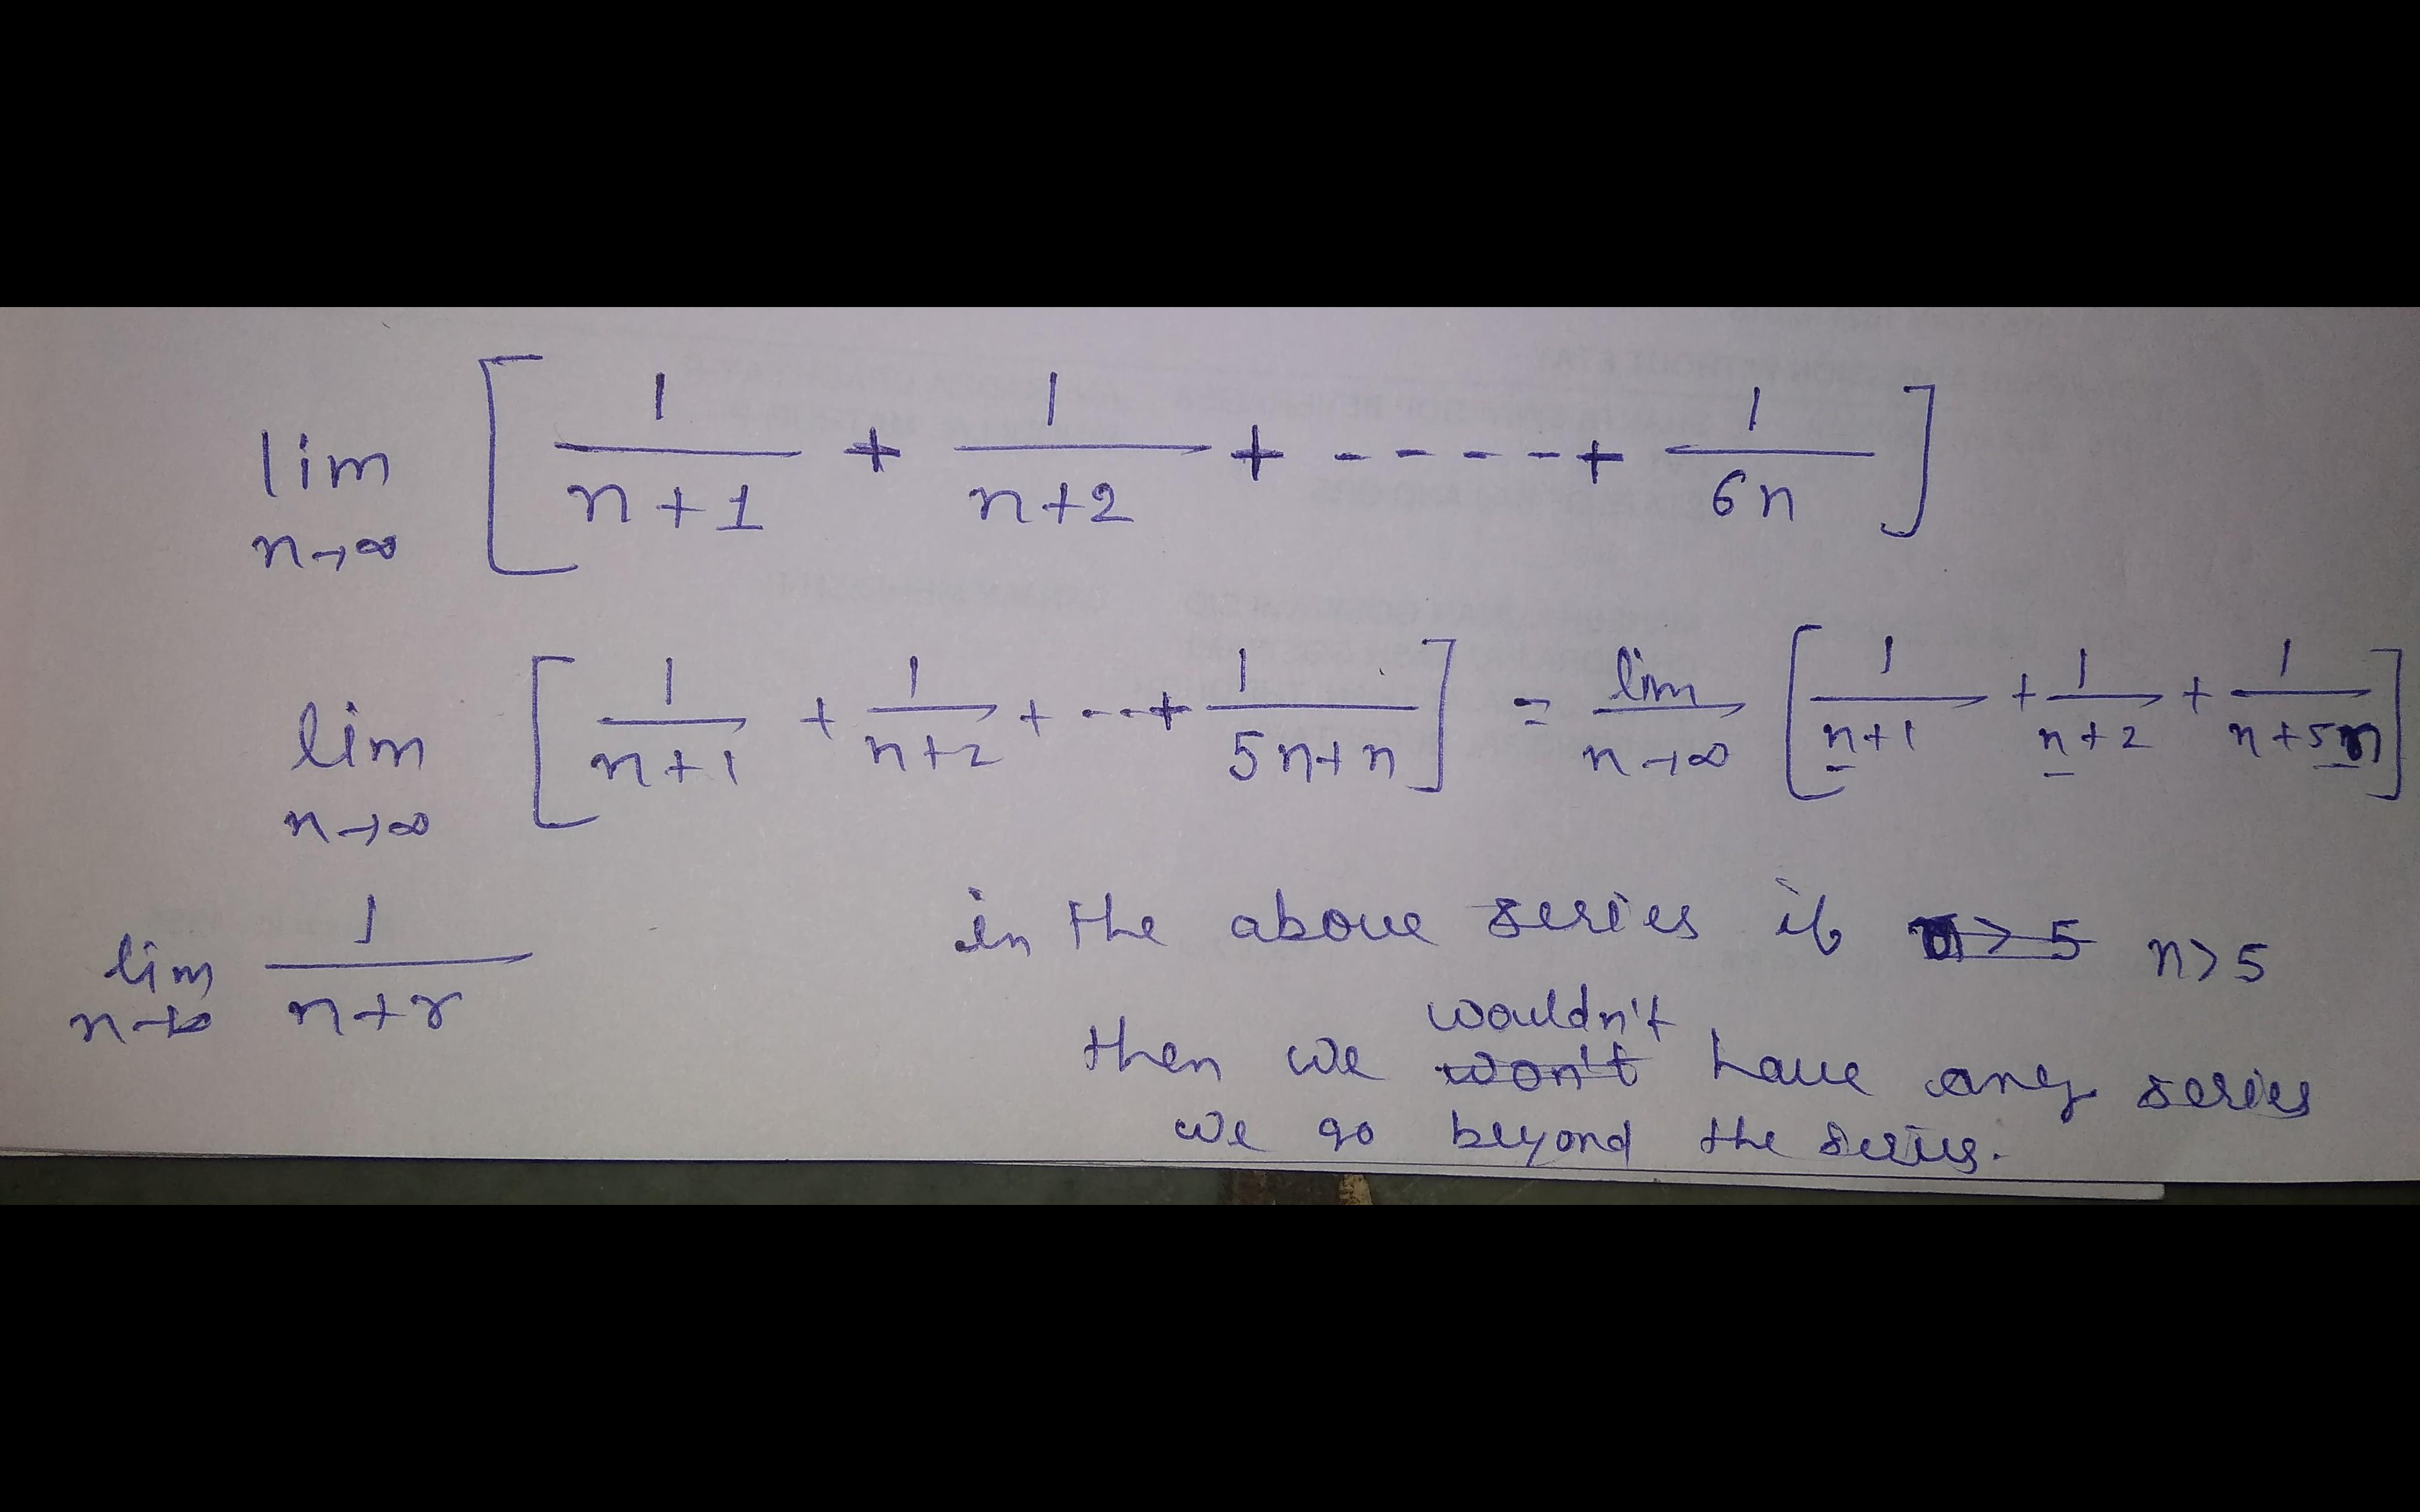 lim n→∞ [ 1/(n+1) + 1/(n+2) + - - - - - + 1/6n ]
lim n→∞ [ 1/(n+1) + 1/(n+2) + - - - + 1/(5n+n) ] = lim n→∞ [ 1/(n+1) + 1/(n+2) + 1/(n+5n) ]
lim n→∞ 1/(n+r)
in the above series if n>5
then we wouldn't have any series
we go beyond the series.